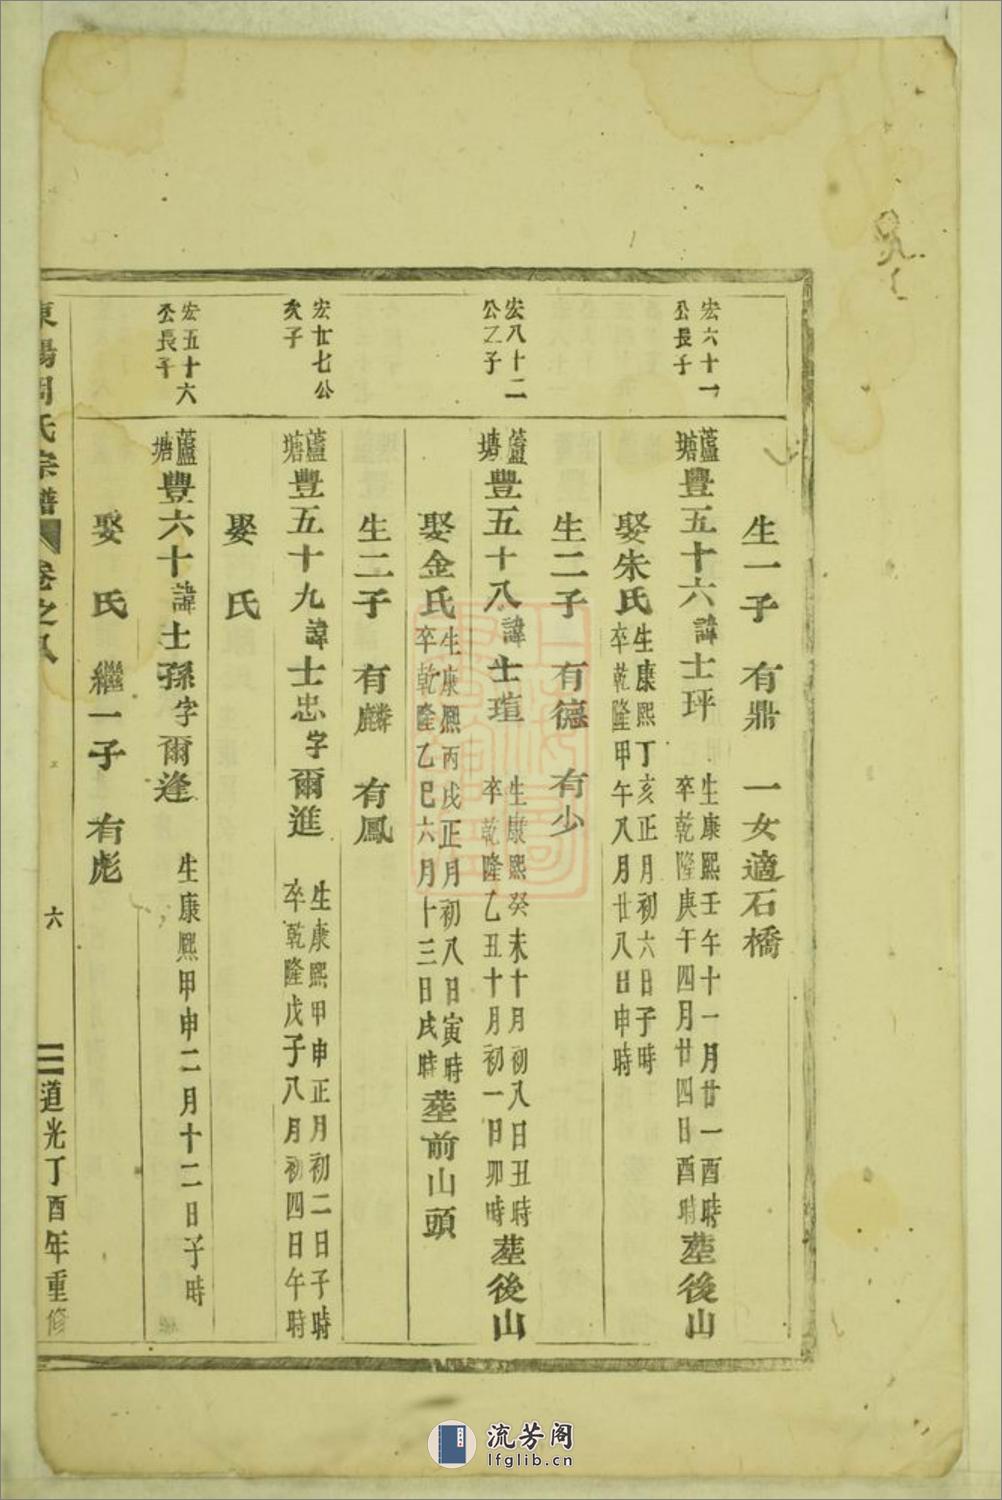 生一子　有鼎　一女適石橋
宏六十一
公長子
蘆塘豐五十六諱士玶
生康熙壬午十一月廿一酉時
卒乾隆庚午四月廿四日酉時
塟後山
娶朱氏
生康熙丁亥正月初六日子時
卒乾隆甲午八月廿八日申時
生二子　有德　有少
宏八十二
公乙子
蘆塘豐五十八諱士瑄
生康熙癸未十月初八日丑時
卒乾隆乙丑十月初一日卯時
塟後山
娶金氏
生康熙丙戌正月初八日寅時
卒乾隆乙巳六月十三日戌時
塟前山頭
生二子　有麟　有鳳
宏廿七公
亥子
蘆塘豐五十九諱士忠字爾進
生康熙甲申正月初二日子時
卒乾隆戊子八月初四日午時
娶　氏
宏五十六
公長子
蘆塘豐六十諱士孫字爾逢
生康熙甲申二月十二日子時
娶　氏　繼一子　有彪
東陽周氏宗譜　卷之八　六　道光丁酉年重修
流芳阁
lfglib.cn